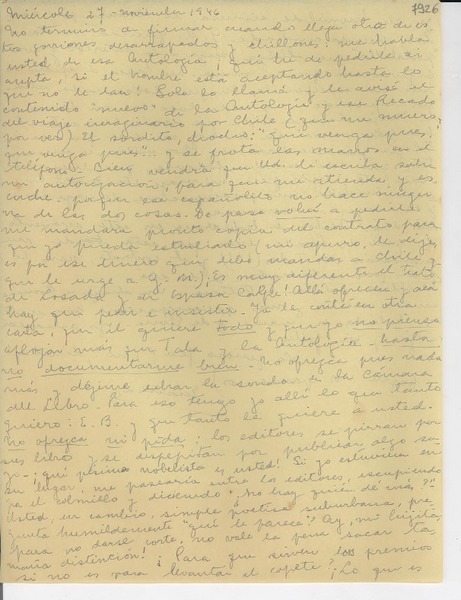 7926
Miércoles 27 - noviembre 1946
No termino de firmar cuando llega otro de es
tos gorriones desarrapados y chillones: me habla
usted de esa Antología, ¿qué he de pedirle si
acepta, si el hombre está aceptando hasta lo
que no le dan! Lola lo llamó y le avisó el
contenido "nuevo" de la Antología y ese Recado
del viaje imaginario por Chile (que me muero
por ver). El sordito, dichos: "que venga pues,
que venga pues" y se frota las manos en el
teléfono. Bien vendría que Ud. le escriba sobre
mi autorización, para que me atienda y es
cuche porque ese españolito no hace ningu
na de las dos cosas. De paso volví a pedirle
me mandara pronto copia del contrato para
que yo pueda estudiarlo (mi apuro, le dije,
es por ese dinero que debo mandar a Chile y
que le urge a G. M.) ¡Es muy diferente el trato
de Losada y en Espasa Calpe! Allá ofrecen y acá
hay que pedir e insistir. Ya le conté en otra
carta, que él quiere todo y que yo no pienso
aflojar más que Tala y la Antología - hasta
no documentarme bien. No ofrezca pues nada
más y déjeme echar la sonda en la Cámara
del Libro. Para eso tengo yo allí lo que tanto
quiero: E. B. y que tanto la quiere a usted.
no ofrezca ni pida: los editores se pirran por
ese libro y se despepitan por publicar algo su
yo. ¡qué primo nobelista es usted! Si yo estuviera en
su lugar, me pasearía entre los editores, escupiendo
por el colmillo y diciendo "¿No hay quién dé más?"
Usted, en cambio, simple poetisa suburbana, pre
gunta humildemente "¿qué le parece?" Ay, mi hijita,
¡para no darse corte, no vale la pena sacar ta
maña distinción! ¿Para qué sirven los premios
si no es para levantar el copete? ¿Lo que es